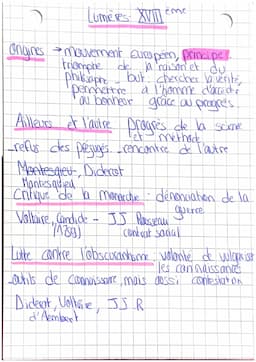 Lumières XVIII ème
Origines → mouvement européen, principe
triomphe de la raison et du
philosophe - but : chercher la vérité,
permettre à l'homme d'accéder
au bonheur grâce au progrès.
Ailleurs et l'autre Progrès de la science
et method
-refus des préjugés -rencontre de l'autre
Montesquieu, Diderot
Montesquieu
Critique de la monarchie : dénonciation de la
guerre
Voltaire, Candide - JJ Rousseau
(1759) (contrat social)
Lutte contre l'obscurantisme : volonté de vulgariser
les connaissances
-outils de connaissance, mais aussi contestation
Diderot, Voltaire, JJ R
d'Alembert